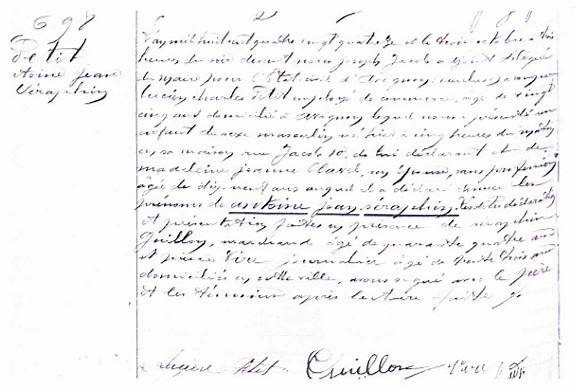 698
Petit
Antoine Jean
Séraphin
L'an mil huit cent quatre vingt quatorze et le trois octobre à trois
heures du soir devant nous Joseph Jacob adjoint délégué
du Maire pour l'état civil d'Avignon, Vaucluse, a comparu
Lucien Charles Petit employé de commerce, âgé de vingt
cinq ans domicilié à Avignon lequel nous a présenté un
enfant du sexe masculin né hier à cinq heures du matin
en sa maison rue Jacob 10, de lui déclarant et de
Madeleine Jeanne Clavel, son épouse, sans profession
âgée de dix neuf ans auquel il a déclaré donner les
prénoms de Antoine Jean Séraphin. Lesdites déclaration
et présentation faites en présence de Séraphin
Guillon, marchand âgé de quarante quatre ans
et journalier âgé de trente trois ans
domiciliés en cette ville, avons signé avec le père
et les témoins après lecture faite
Lucien Petit Guillon